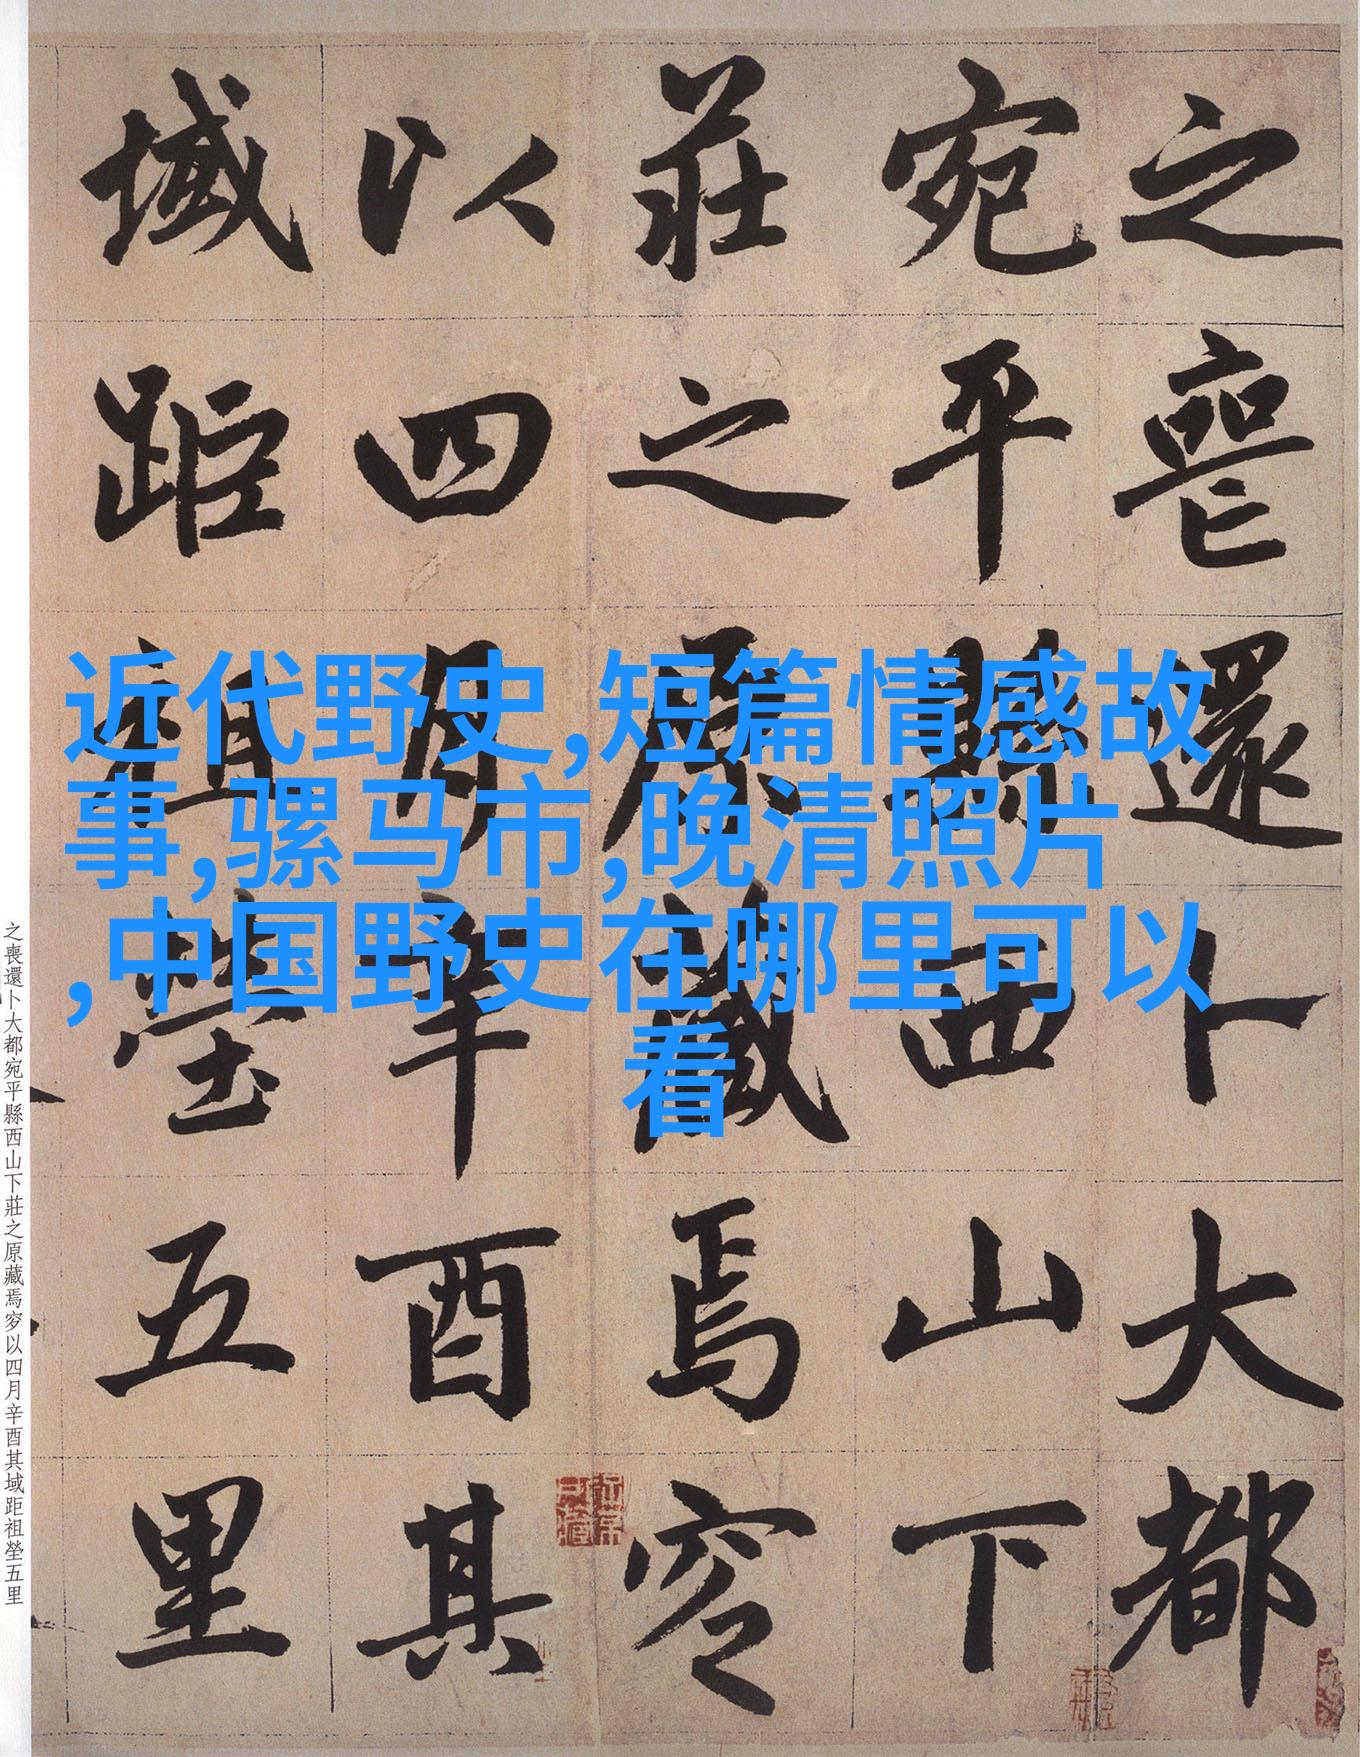 之喪還卜大都
宛平縣西山下
莊之原藏焉穸
以四月辛酉其
域距祖塋五里
近代野史,短篇情感故
事,骡马市,晚清照片
,中国野史在哪里可以
看
之喪還卜大都宛平縣西山下莊之原藏焉穸以四月辛酉其域距祖塋五里